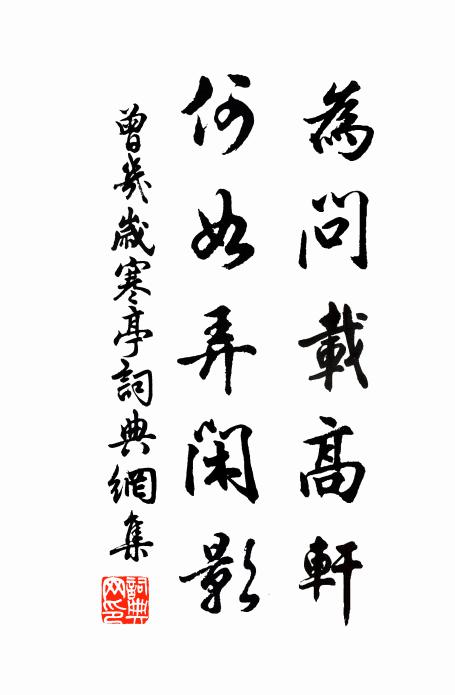 為問載高軒
何如弄閑影
曾幾歲寒亭詞典網集
詞典網印